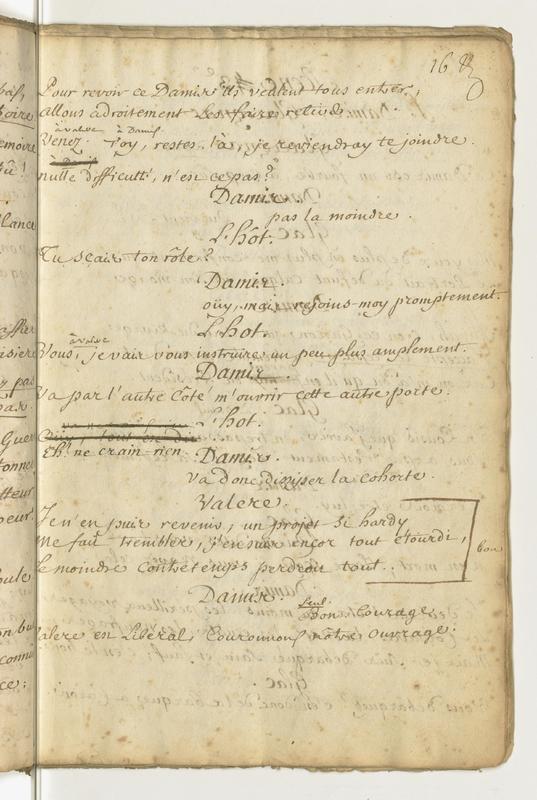 16
Pour revoir ce Damis ils veulent tous entrer,
allons adroitement les faire retirer.
à valere à Damis
Venez. Toy, restes là, je reviendray te joindre.
nulle difficulté, n'est ce pas?
Damis.
pas la moindre.
L'hôt.
Tu sçais ton rôle?
Damis
oüy, mais rejoins-moy promptement.
L'hot.
à valere
Vous, je vais vous instruire un peu plus amplement.
Damis
Va par l'autre côté m'ouvrir cette autre porte.
L'hot.
Oüy, tout
Eh! ne crain rien.
Damis.
va donc dissiper la cohorte.
Valere.
Je n'en puis revenir, un projet si hardy
Me fait trembler, j'en suis encor tout etourdi,
bon
Le moindre contretemps perdroit tout.
Damis.
seul.
Bon. Courage,
Valere est Liberal, Couronnons nôtre ouvrage.